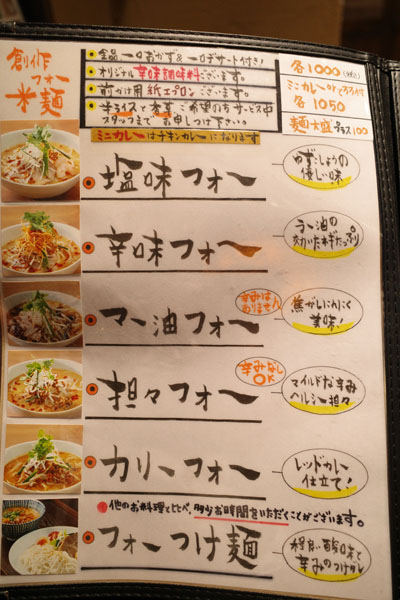 創作
フォー
米麺
全品 一口おかず & 一口デザート付き!
オリジナル 辛味調味料ございます。
前かけ用 紙エプロン ございます。
スタッフまで お申しつけ下さい。
ミニカレーはチキンカレーになります
各1000
ミニカレー
各1050
麺大盛プラス100
塩味フォー
ゆずこしょうの
優しい味
辛味フォー
ラー油の
効いたネギたっぷり
マー油フォー
辛みは
ありません
焦がしにんにく
美味!
担々フォー
辛みなし
OK
マイルドな辛み
ヘルシー担々
カリーフォー
レッドカレー
仕立て!
他のお料理と比べ、多少お時間をいただくことがございます。
フォーつけ麺
程良い酸味と
辛みのつけダレ